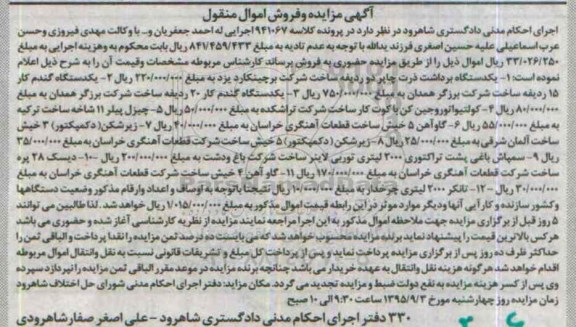 آگهی مزایده وفروش اموال منقول
اجرای احکام مدنی دادگستری شاهرود در نظر دارد در پرونده کلاسه ۹۴۱۰۶۷ اجرایی له احمد جعفریان و... با وکالت مهدی فیروزی وحسن
عرب اسماعیلی علیه حسین اصغری فرزند یدالله با توجه به عدم تادیه به مبلغ ۸۴۱/۴۵۹/۴۳۳ ریال بابت محکوم به وهزینه اجرایی به مبلغ
۳۳/۰۲۶/۲۵۰ ریال اموال ذیل را از طریق مزایده حضوری به فروش برساند کارشناس مربوطه مشخصات وقیمت آن را به شرح ذیل اعلام
نموده است: ۱- یکدستگاه برداشت ذرت چاپر دو ردیفه ساخت شرکت برچینکارد یزد به مبلغ ۲۲۰/۰۰۰/۰۰۰ ریال ۲- یکدستگاه گندم کار
۱۵ ردیفه ساخت شرکت برزگر همدان به مبلغ ۷۵۰/۰۰۰/ ریال ۳- یکدستگاه گندم کار ۲۰ ردیفه ساخت شرکت برزگر همدان به مبلغ
۸۰/۰۰۰/۰۰۰ ریال ۴- کولتیواتوروجین کن با کوت کار ساخت شرکت تراشکده به مبلغ ۵۰/۰۰۰/۰۰۰ ریال ۵- چیزل پیلر ۱۱ شاخه ساخت ترکیه
به مبلغ ۵۵/۰۰۰/۰۰۰ ریال ۶- گاوآهن ۵ خیش ساخت قطعات آهنگری خراسان به مبلغ ۴۰/۰۰۰/۰۰۰ ریال ۷- زیرشکن( دکمپکتور) ۳ خیش
ساخت آلمان شرقی به مبلغ ۲۵/۰۰۰/۰۰۰ ریال ۸- زیرشکن (دکمپکتور) ۵ خیش ساخت شرکت قطعات آهنگری خراسان به مبلغ ۳۵/۰۰۰/۰۰۰
ریال ۹- سمپاش باغی پشت تراکتوری ۲۰۰۰ لیتری توربی لاینر ساخت شرکت باغ ودشت به مبلغ ۲۰۰/۰۰۰/۰۰۰ ریال ۱۰- دیسک ۲۸ پره
ساخت شرکت قطعات آهنگری خراسان به مبلغ ۱۷۰/۰۰۰/۰۰۰ ریال ۱۱- گاو آهن ۴ خیش ساخت شرکت قطعات آهنگری خراسان به مبلغ
۳۰/۰۰۰/۰۰۰ ریال ۱۲- تانکر ۲۰۰۰ لیتری چرخدار به مبلغ ریال نتیجتا باتوجه به اوصاف واعداد وارقام مذکور وضعیت دستگاهها
وکشور سازنده و کارآیی آنها ودیگر موارد موثر در این رابطه قیمت اموال مذکور به مبلغ ۱/۰۱۵/۰۰۰/۰۰۰ ریال خواهد شد. لذا طالبین می توانند
۵ روز قبل از برگزاری مزایده جهت ملاحظه اموال مذکور به این اجرا مراجعه نمایند مزایده از نظریه کارشناسی آغاز شده و حضوری می باشد
هر کس بالاترین قیمت را پیشنهاد نماید برنده مزایده محسوب خواهد شد که می بایست ده درصد ثمن مزایده را نقدا پرداخت و الباقی ثمن را
حداکثر ظرف ده روز پس از برگزاری مزایده پرداخت نماید و پس از پرداخت کل مبلغ و تشریفات قانونی نسبت به نقل وانتقال اموال مربوطه
اقدام خواهد شد هر گونه هزینه نقل وانتقال به عهده خریدار می باشد چنانچه برنده مزایده در موعد مقرر الباقی ثمن مزایده را نپردازد سپرده
وی پس از کسر هزینه مزایده به نفع دولت ضبط و مزایده تجدید می گردد. مکان مزایده: دفتر اجرای احکام مدنی شورای حل اختلاف شاهرود
زمان مزایده روز چهارشنبه مورخ ۱۳۹۵/۹/۳ ساعت ۹:۳۰ الی ۱۰ صبح
۳۳۰ دفتر اجرای احکام مدنی دادگستری شاهرود - علی اصغر صفار شاهرودی